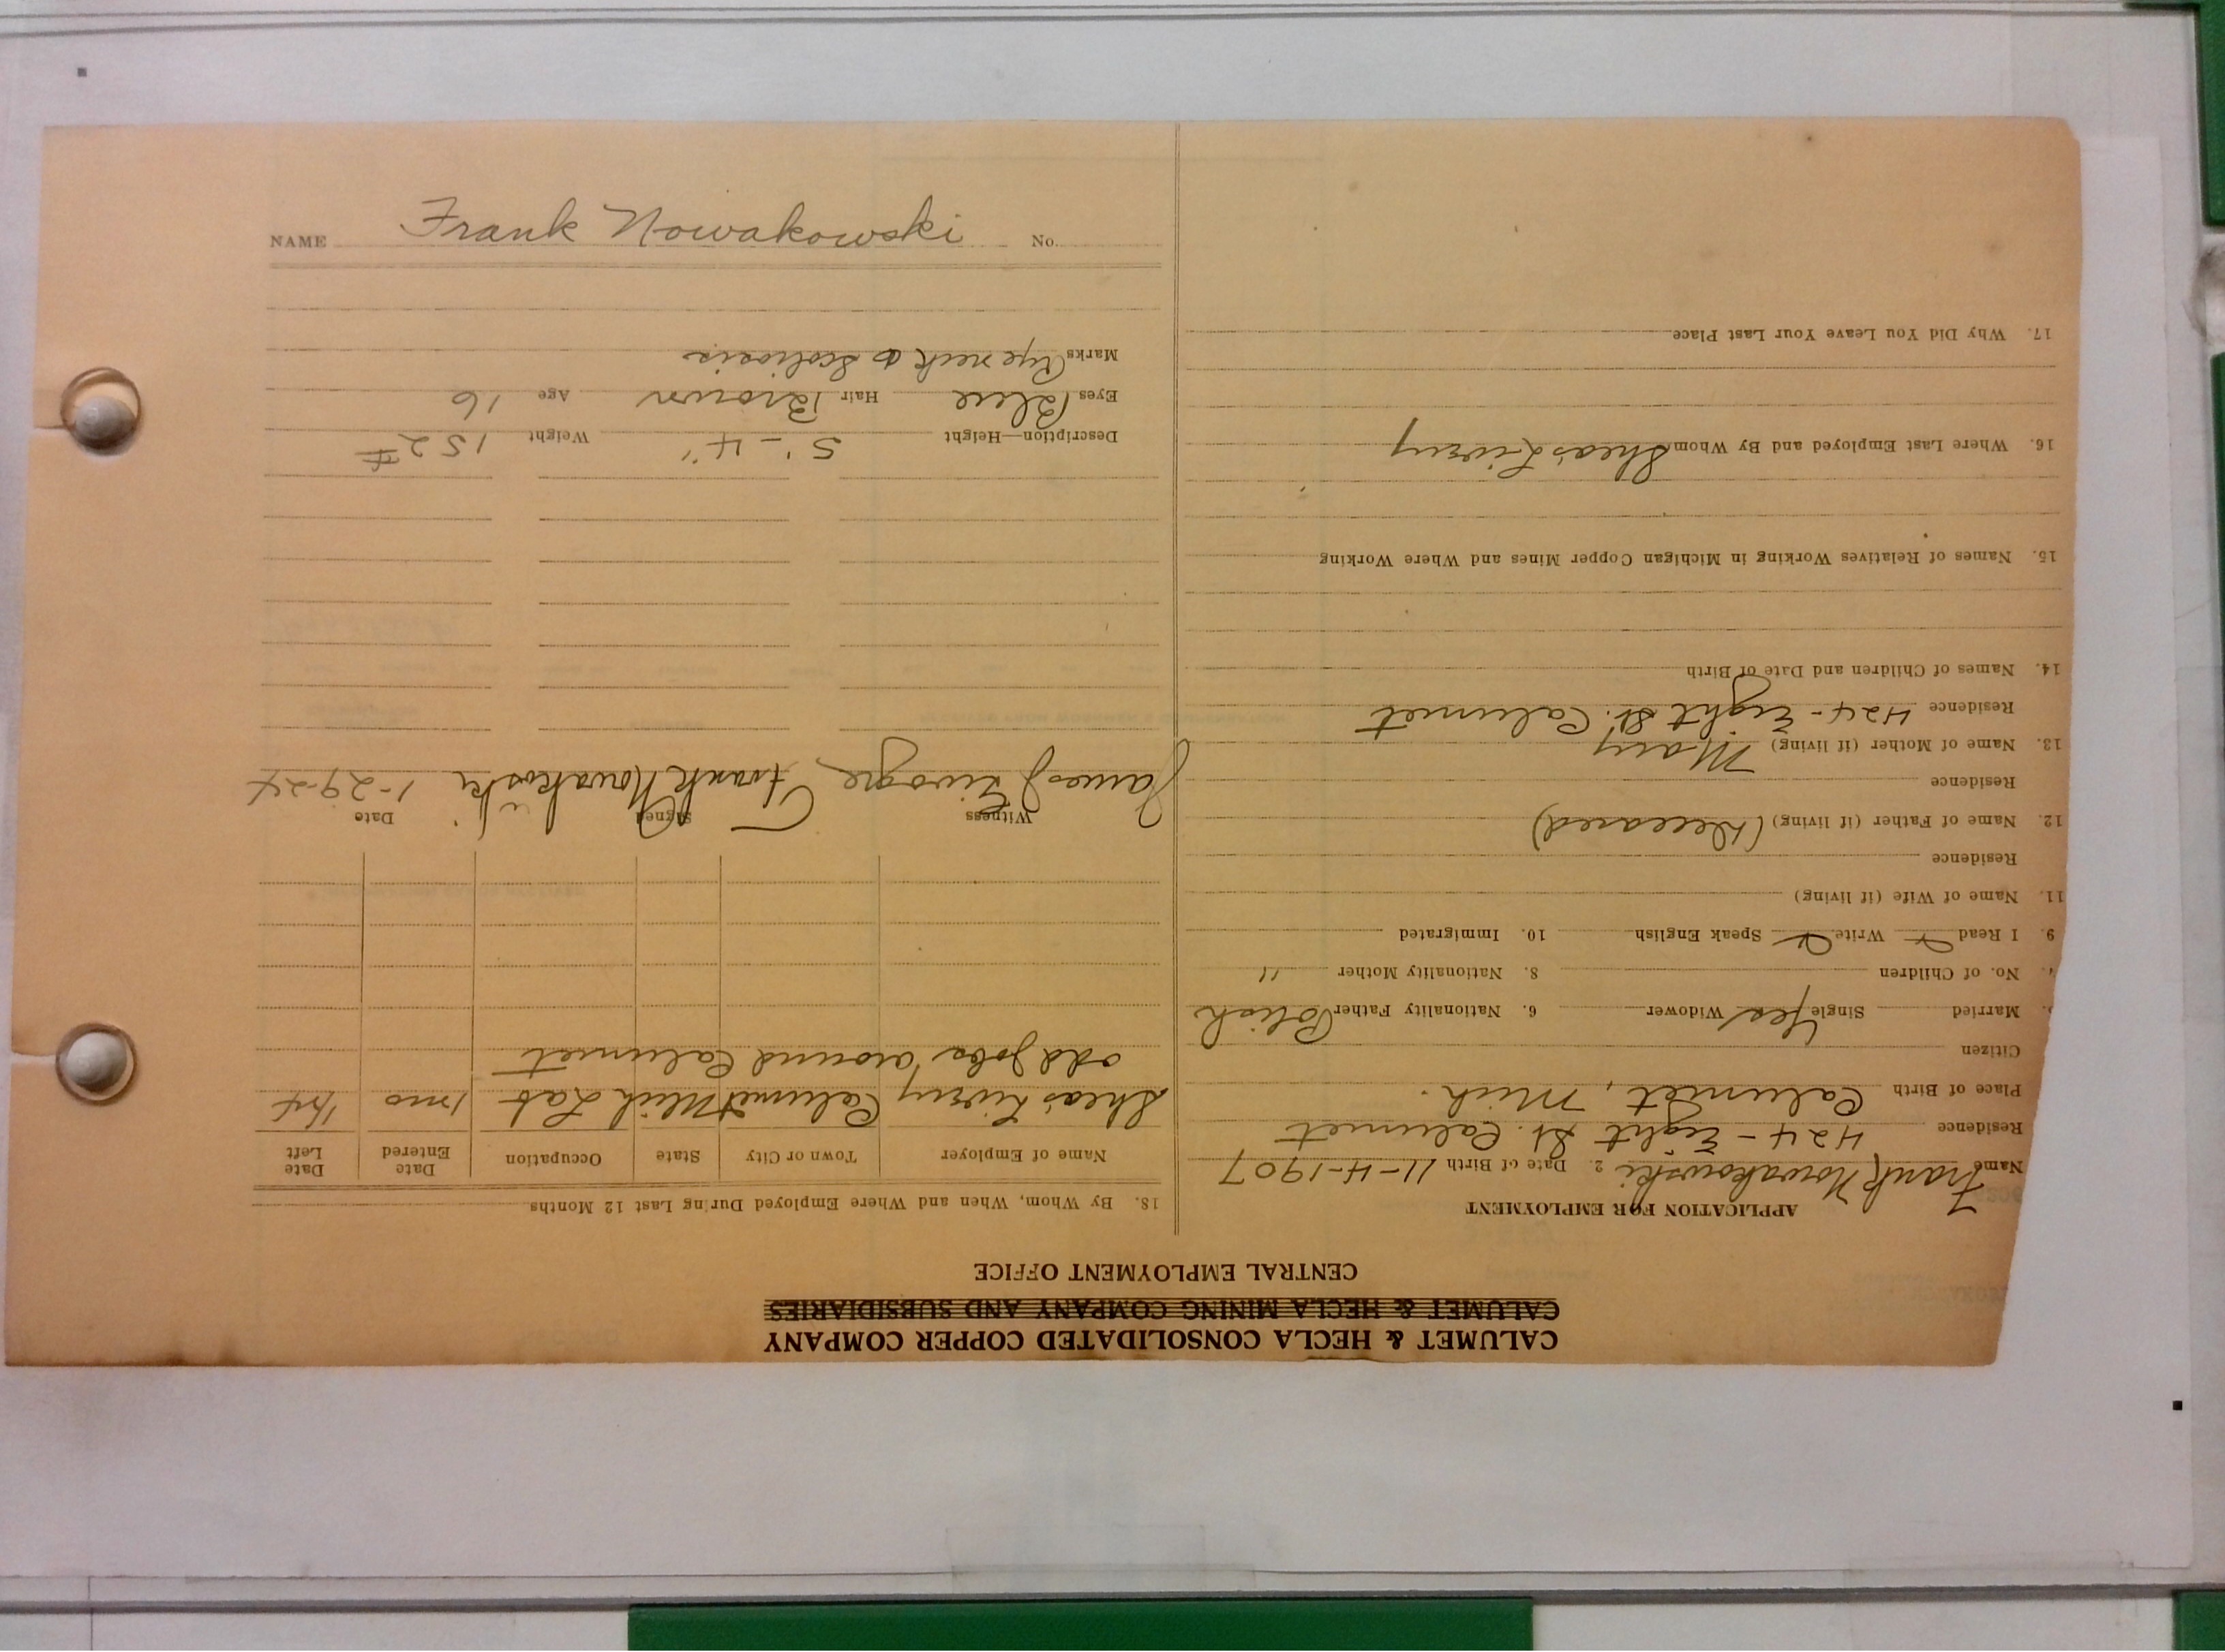 CALUMET & HECLA CONSOLIDATED COPPER COMPANY
CALUMET & HECLA MINING COMPANY AND SUBSIDIARIES
CENTRAL EMPLOYMENT OFFICE
APPLICATION FOR EMPLOYMENT
Name Frank Nowakowski 2. Date of Birth 11-4-1907
Residence 424 - Eight St. Calumet
Place of Birth Calumet, Mich.
Citizen
Married Single Yes Widower 6. Nationality Father Polish
No. of Children 8. Nationality Mother "
9. I Read Write Speak English 10. Immigrated
11. Name of Wife (if living)
Residence
12. Name of Father (if living) (Deceased)
Residence
13. Name of Mother (if living) Mary
Residence 424 - Eight St. Calumet
14. Names of Children and Date of Birth
15. Names of Relatives Working in Michigan Copper Mines and Where Working
16. Where Last Employed and By Whom Shea's Livery
17. Why Did You Leave Your Last Place
18. By Whom, When and Where Employed During Last 12 Months
Name of Employer Town or City State Occupation Date Entered Date Left
Shea's Livery Calumet Mich Lab 1 mo 1/24
odd jobs around Calumet
Witness Signed Date
James Frank Nowakoski 1-29-24
Description—Height 5'-4" Weight 152#
Eyes Blue Hair Brown Age 16
Marks neck & Scoliosis
NAME Frank Nowakowski No.